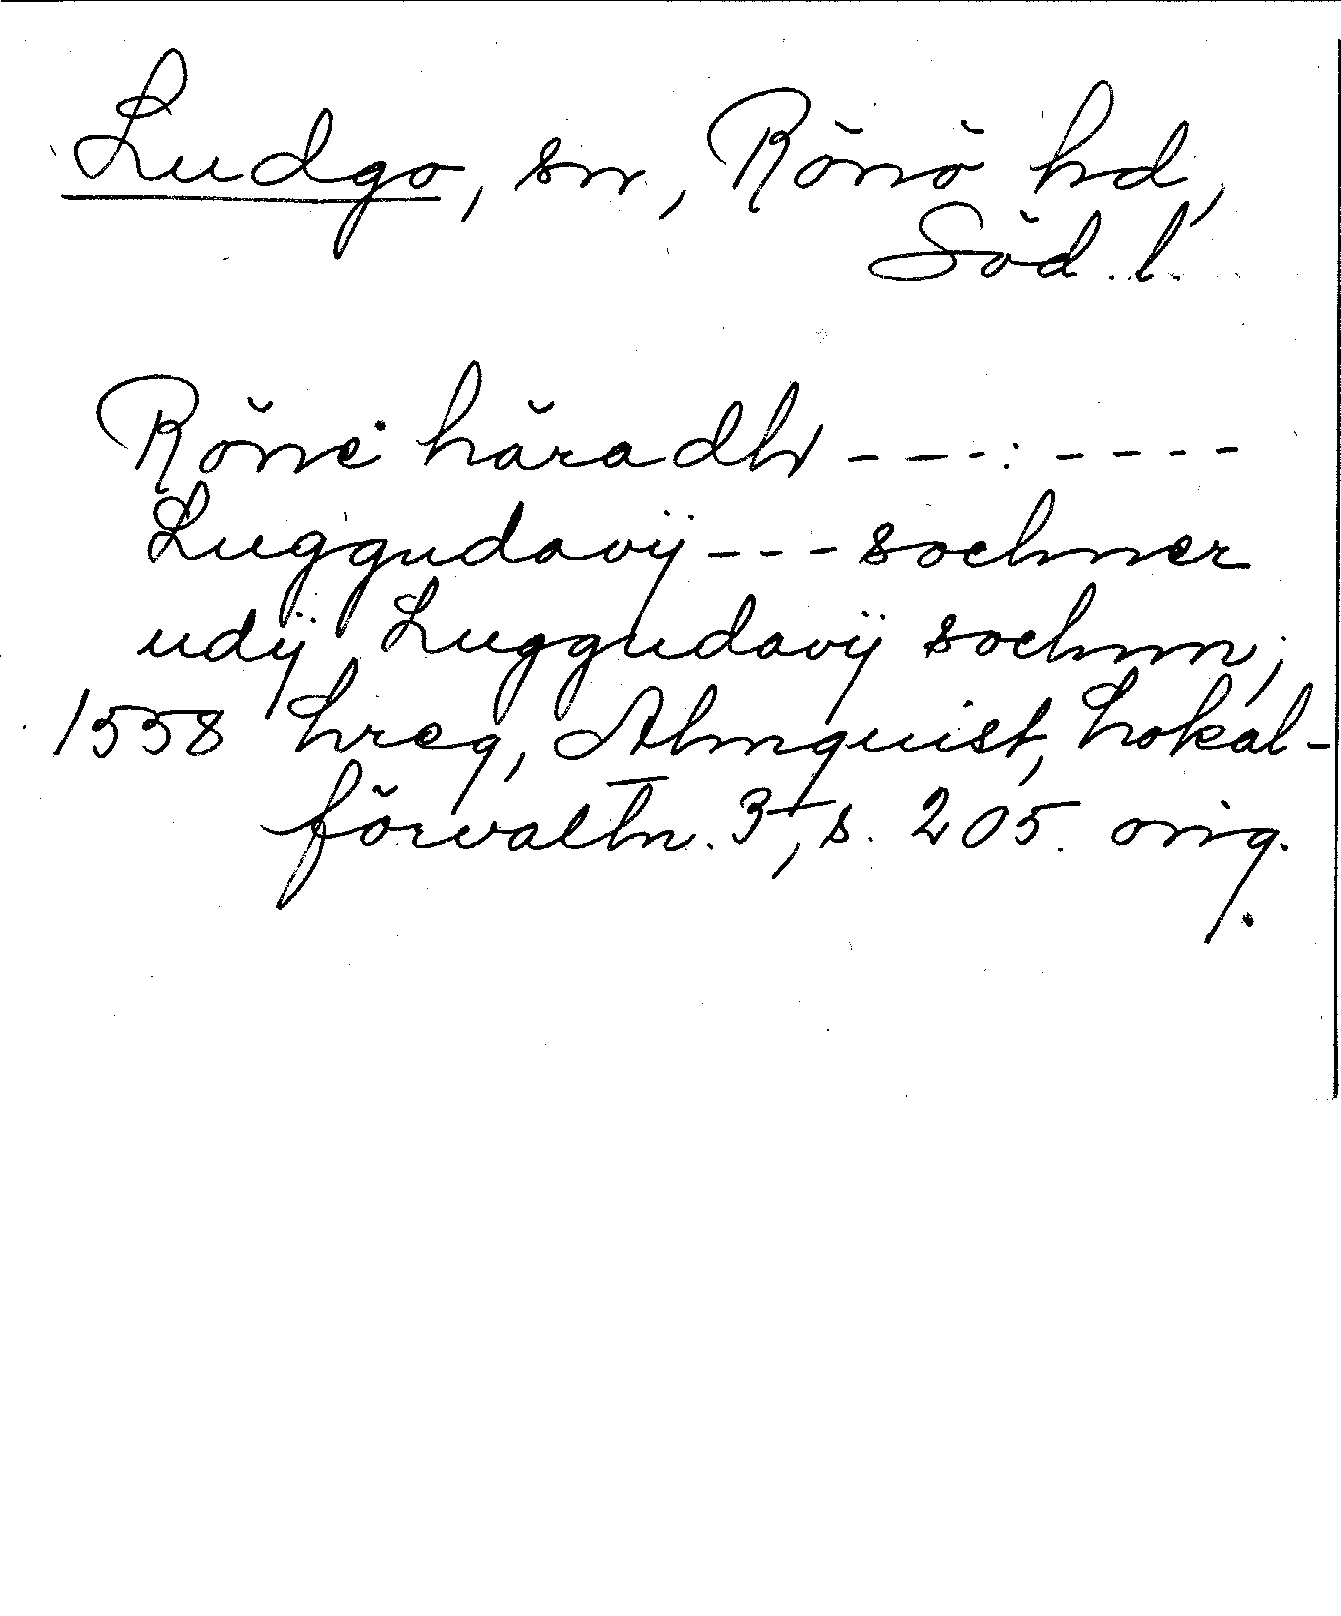 Ludgo, sn, Rönö hd,
Söd. l.
Röne häradh - - - : - - - -
Luggudavÿ - - - sochner
udÿ Luggudavÿ sochnn;
1558 hreg, Almquist, Lokal-
förvaltn. 3, s. 205. orig.